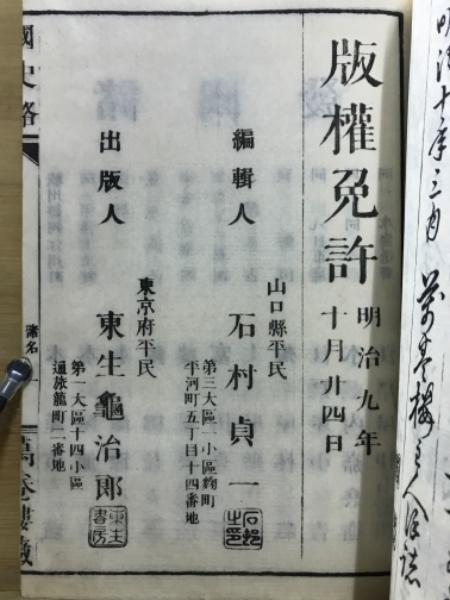 明治十年三月
版權免許
明治九年
十月廿四日
編輯人
山口縣平民
石村貞一
第三大區一小區麴町
平河町五丁目十四番地
出版人
東京府平民
東生龜治郎
第一大區十四小區
通旅籠町二番地
東生
書房
國史略
諸名
一
萬卷樓藏